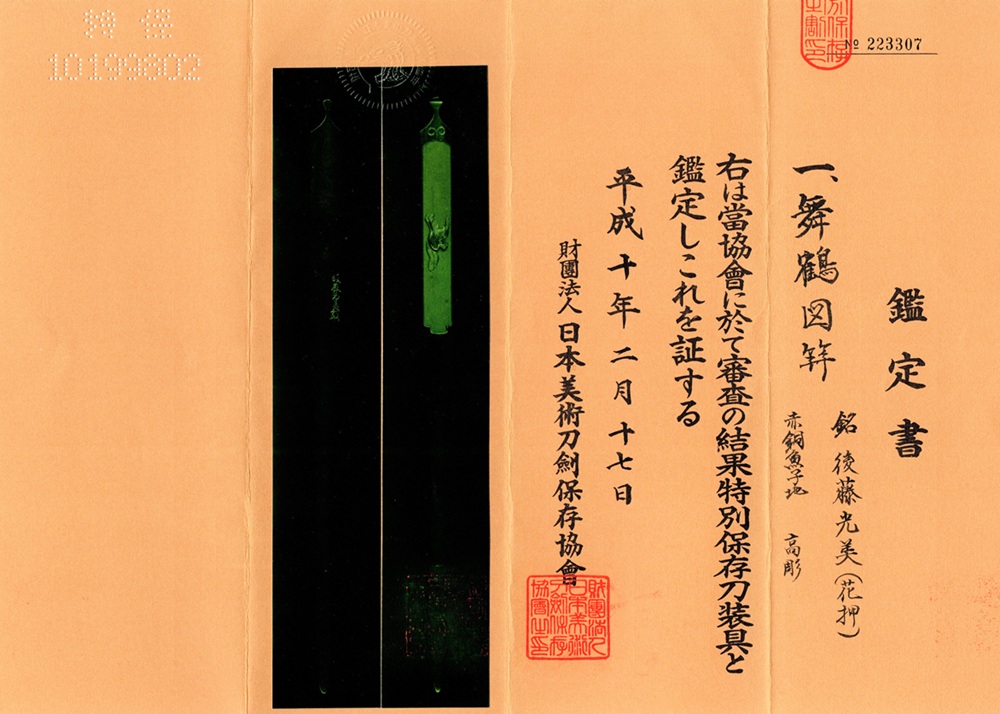 № 223307
鑑定書
一、舞鶴図笄
銘 後藤光美(花押)
赤銅魚子地 高彫
右は當協會に於て審査の結果特別保存刀装具と
鑑定しこれを証する
平成十年二月十七日
財團法人 日本美術刀劍保存協會
財團法人日本美術刀劍保存協會之印
特保
10199802